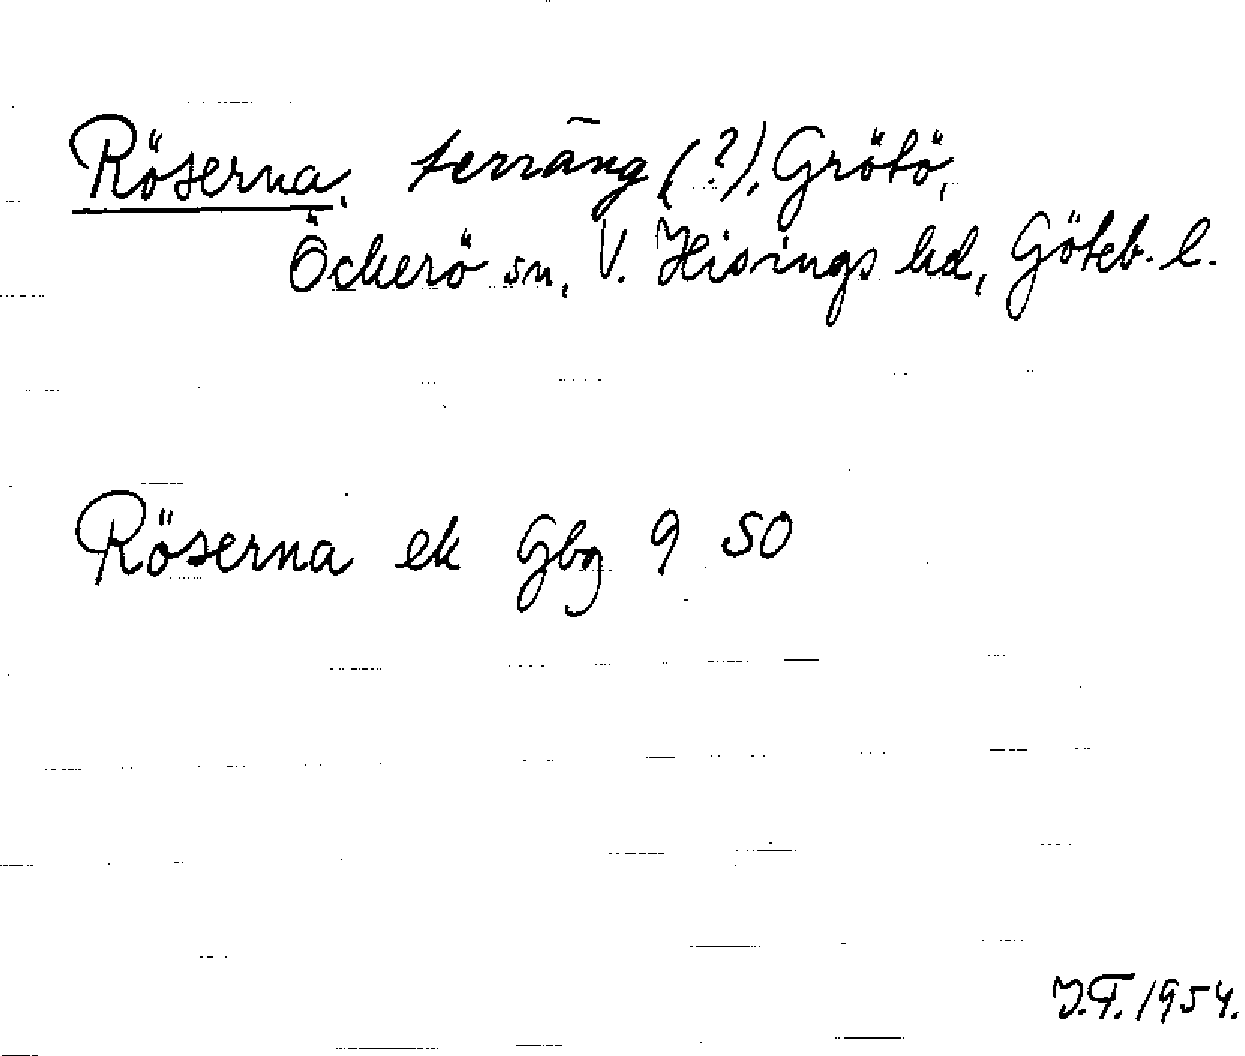 Röserna, terräng (?), Grötö,
Öckerö sn, V. Hisings hd, Göteb. l.
Röserna ek Gbg 9 50
I.F. 1954.